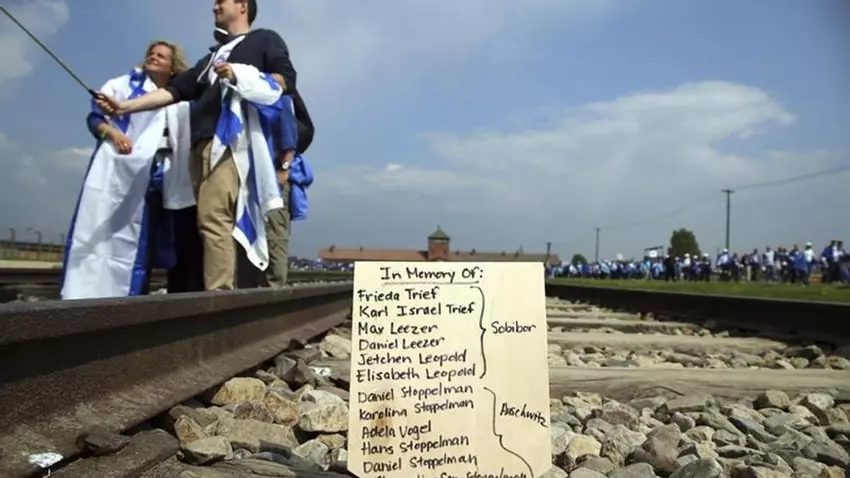 In Memory Of:
Frieda Trief
Karl Israel Trief
Max Leezer
Daniel Leezer
Jetchen Leopold
Elisabeth Leopold
Sobibor
Daniel Stoppelman
Karolina Stoppelman
Adela Vogel
Hans Stoppelman
Daniel Stoppelman
Auschwitz